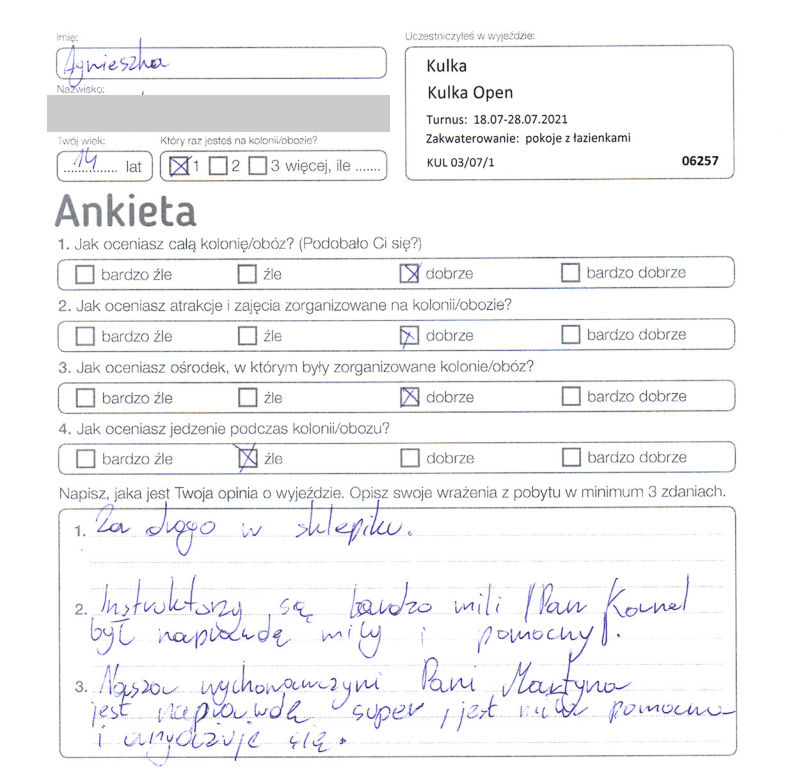 Imię:
Agnieszka
Nazwisko:
Twój wiek:
14 lat
Który raz jesteś na kolonii/obozie?
1 2 3 więcej, ile .......
Uczestniczyłeś w wyjeździe:
Kulka
Kulka Open
Turnus: 18.07-28.07.2021
Zakwaterowanie: pokoje z łazienkami
KUL 03/07/1 06257
Ankieta
1. Jak oceniasz całą kolonię/obóz? (Podobało Ci się?)
bardzo źle źle dobrze bardzo dobrze
2. Jak oceniasz atrakcje i zajęcia zorganizowane na kolonii/obozie?
bardzo źle źle dobrze bardzo dobrze
3. Jak oceniasz ośrodek, w którym były zorganizowane kolonie/obóz?
bardzo źle źle dobrze bardzo dobrze
4. Jak oceniasz jedzenie podczas kolonii/obozu?
bardzo źle źle dobrze bardzo dobrze
Napisz, jaka jest Twoja opinia o wyjeździe. Opisz swoje wrażenia z pobytu w minimum 3 zdaniach.
1. Za drogo w sklepiku.
2. Instruktorzy są bardzo mili (Pan Kornel
był naprawdę miły i pomocny).
3. Nasza wychowawczyni Pani Martyna
jest naprawdę super, jest miła pomocna
i się.